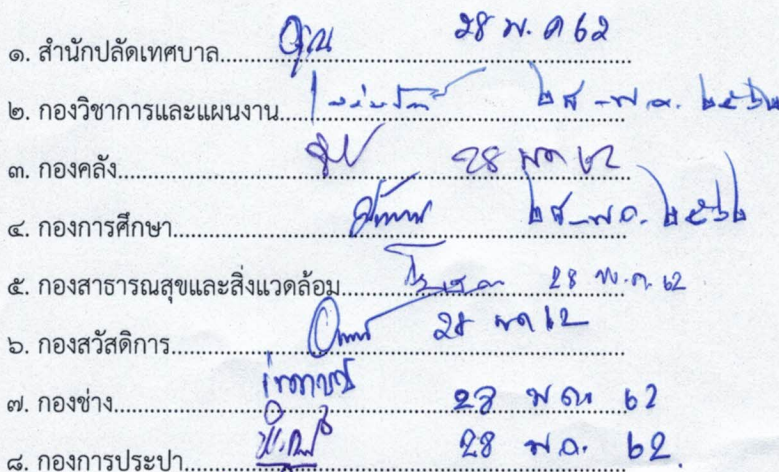 ๑. สำนักปลัดเทศบาล.................... 28 พ.ค 62
๒. กองวิชาการและแผนงาน.................... ๒๘ - พ.ค. ๒๕๖๒
๓. กองคลัง.................... 28 พค 62
๔. กองการศึกษา.................... ๒๘ - พ.ค. ๒๕๖๒
๕. กองสาธารณสุขและสิ่งแวดล้อม.................... 28 พ.ค. 62
๖. กองสวัสดิการ.................... 28 พค 62
๗. กองช่าง.................... 28 พค 62
๘. กองการประปา.................... 28 พ.ค. 62